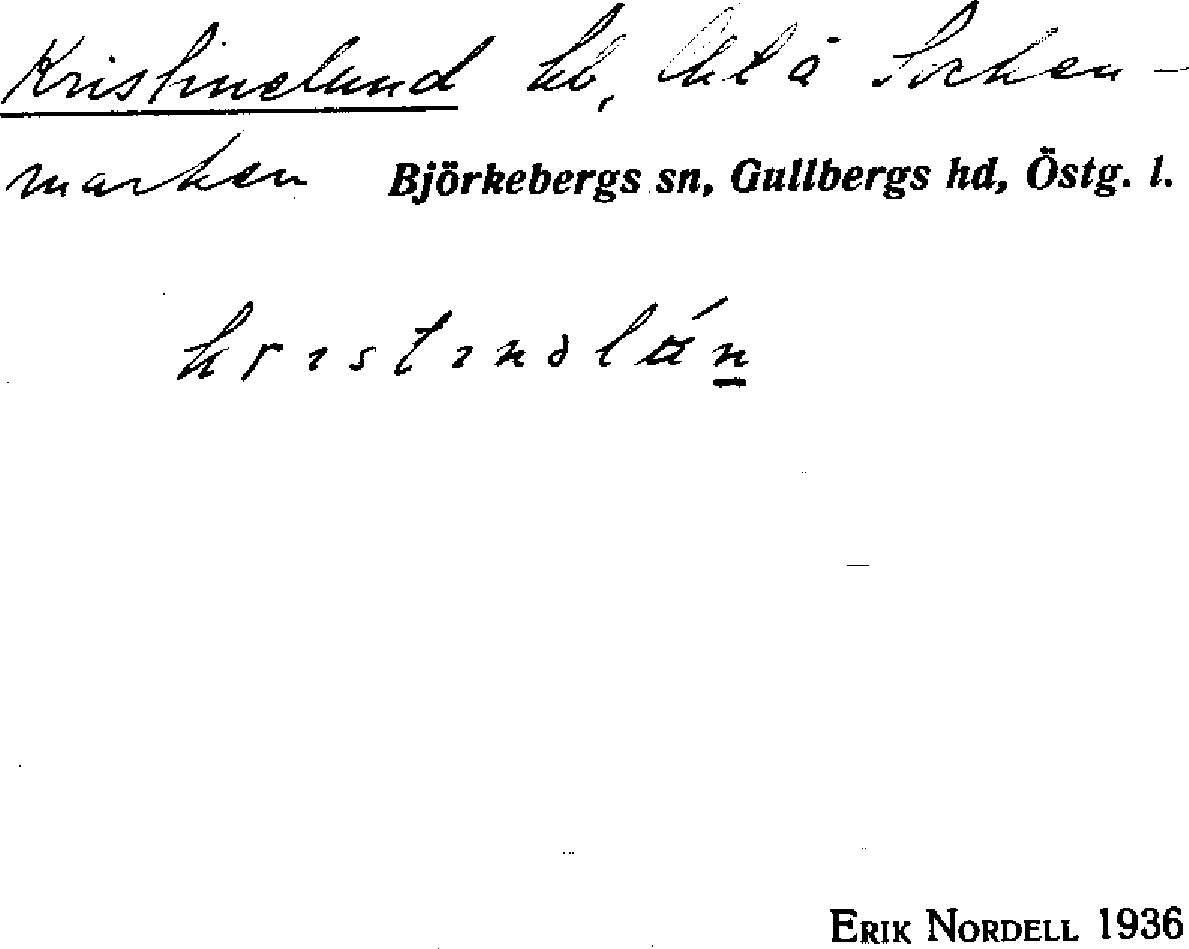 Kristinelund lb, lht å Socken-
marken Björkebergs sn, Gullbergs hd, Östg. l.
ERIK NORDELL 1936